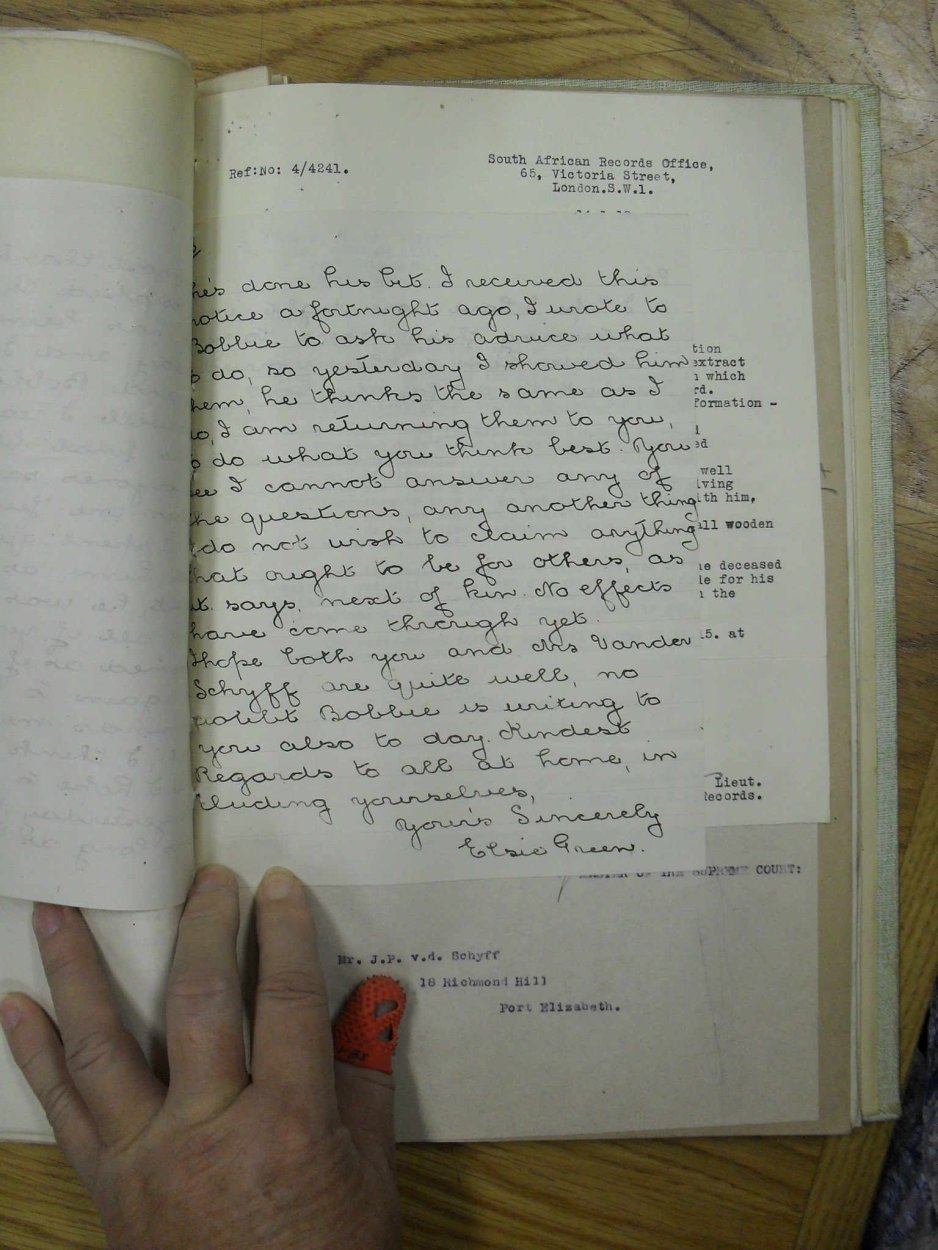 Ref:No: 4/4241.
South African Records Office,
65, Victoria Street,
London.S.W.1.
he's done his bit. I received this
notice a fortnight ago, I wrote to
Bobbie to ask his advice what
to do, so yesterday I showed him
them, he thinks the same as I
do, I am returning them to you,
to do what you think best. You
see I cannot answer any of
the questions, any another thing
I do not wish to claim anything
that ought to be for others, as
it says, next of kin. No effects
have come through yet.
I hope both you and Mrs Vander
Schyff are quite well, no
doubt Bobbie is writing to
you also to day. Kindest
Regards to all at home, in
cluding yourselves,
Your's Sincerely
Elsie Green.
tion
extract
which
rd.
formation -
ed
well
iving
ith him,
all wooden
he deceased
le for his
the
15. at
Lieut.
Records.
MASTER OF THE SUPREME COURT:
Mr. J.P. v.d. Schyff
18 Richmond Hill
Port Elizabeth.